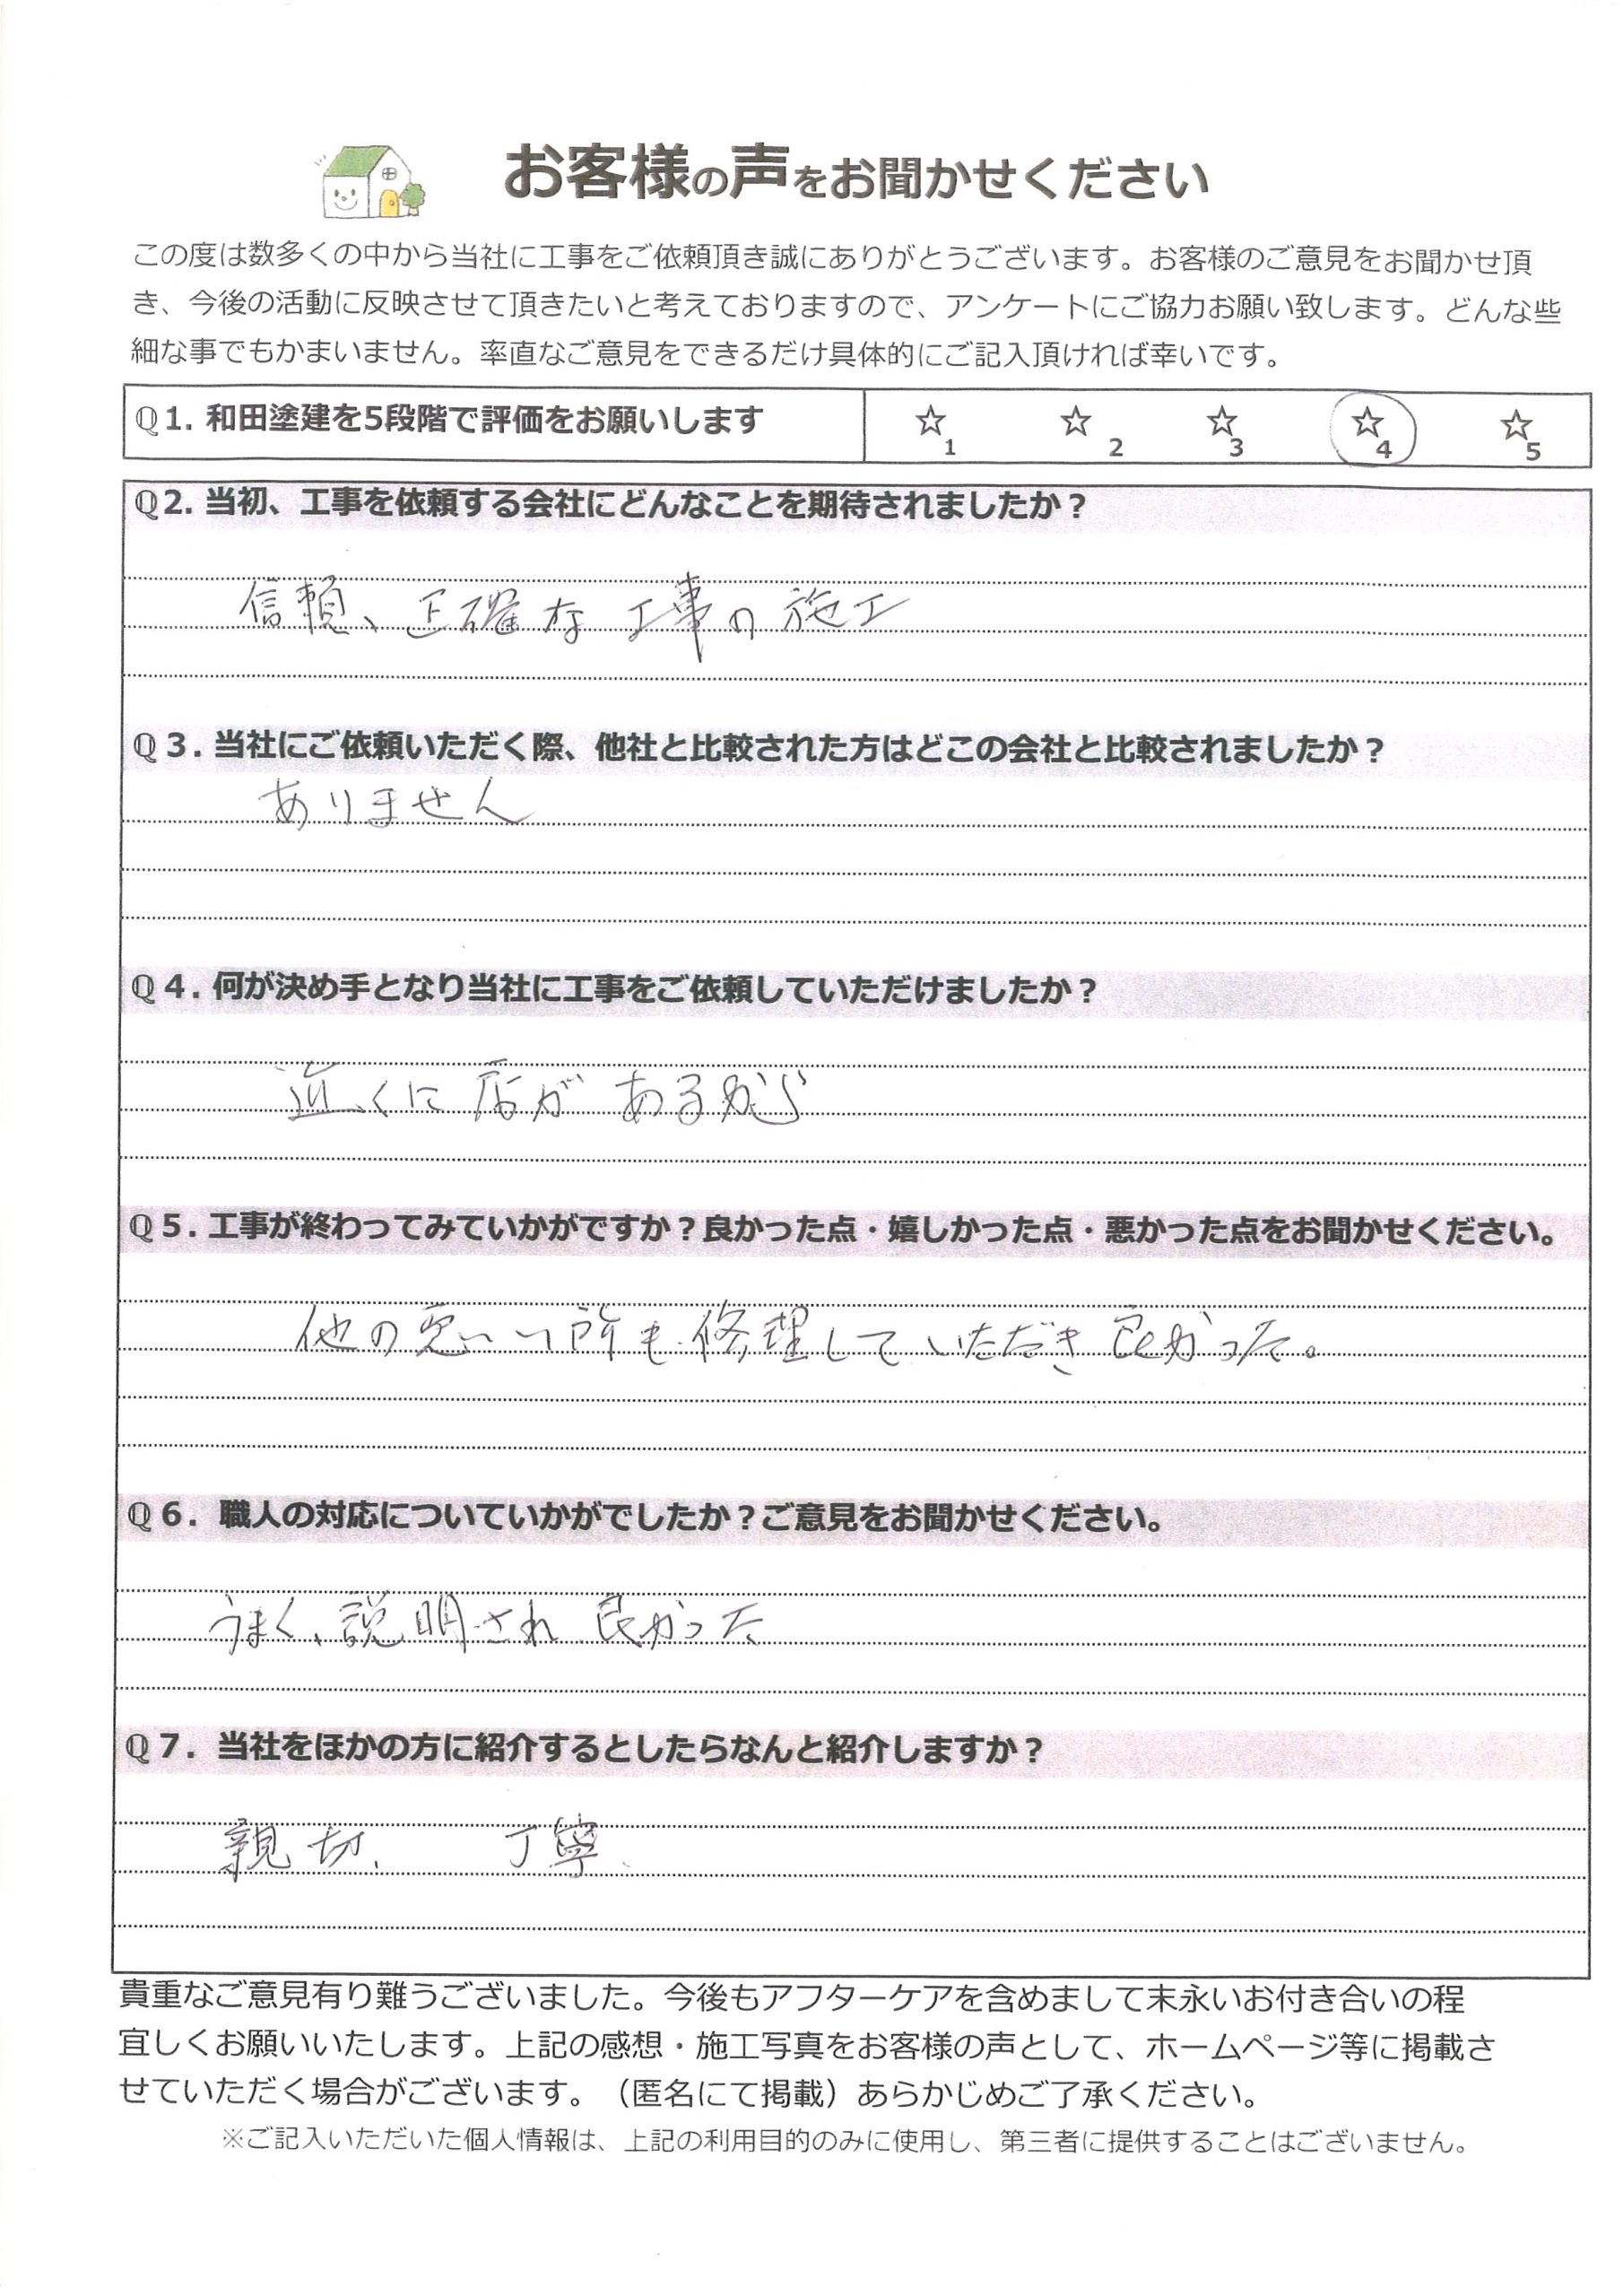 お客様の声をお聞かせください
この度は数多くの中から当社に工事をご依頼頂き誠にありがとうございます。お客様のご意見をお聞かせ頂
き、今後の活動に反映させて頂きたいと考えておりますので、アンケートにご協力お願い致します。どんな些
細な事でもかまいません。率直なご意見をできるだけ具体的にご記入頂ければ幸いです。
Q1. 和田塗建を5段階で評価をお願いします ☆1 ☆2 ☆3 ☆4 ☆5
Q2. 当初、工事を依頼する会社にどんなことを期待されましたか？
信頼、正確な工事の施工
Q３. 当社にご依頼いただく際、他社と比較された方はどこの会社と比較されましたか？
ありません
Q４. 何が決め手となり当社に工事をご依頼していただけましたか？
近くに店があるから
Q５. 工事が終わってみていかがですか？良かった点・嬉しかった点・悪かった点をお聞かせください。
他の悪い所も修理していただき良かった。
Q６. 職人の対応についていかがでしたか？ご意見をお聞かせください。
うまく、説明され良かった
Q７. 当社をほかの方に紹介するとしたらなんと紹介しますか？
親切、 丁寧、
貴重なご意見有り難うございました。今後もアフターケアを含めまして末永いお付き合いの程
宜しくお願いいたします。上記の感想・施工写真をお客様の声として、ホームページ等に掲載さ
せていただく場合がございます。（匿名にて掲載）あらかじめご了承ください。
※ご記入いただいた個人情報は、上記の利用目的のみに使用し、第三者に提供することはございません。